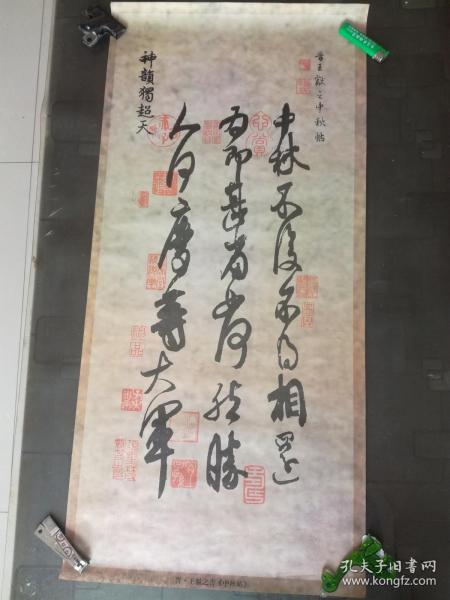 晋王献之中秋帖
中秋不復不得相還
為即甚省如何然勝
人何慶等大軍
神韻獨超天
晋·王献之书《中秋帖》
孔夫子旧书网
kongfz.com